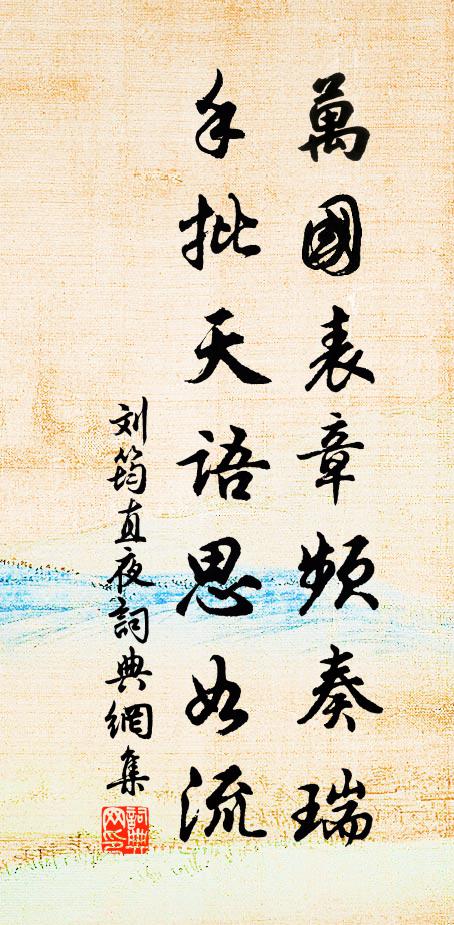 萬國表章頻奏瑞
手批天語思如流
刘筠直夜詞典網集
詞典網印